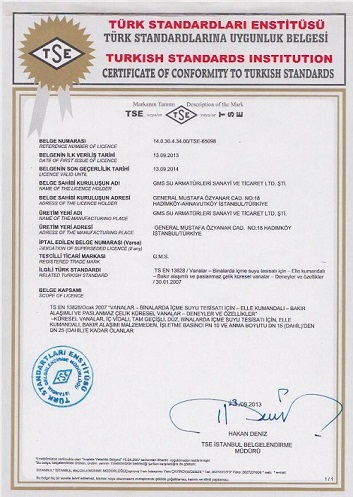 TÜRK STANDARDLARI ENSTİTÜSÜ
TÜRK STANDARDLARINA UYGUNLUK BELGESİ
TURKISH STANDARDS INSTITUTION
CERTIFICATE OF CONFORMITY TO TURKISH STANDARDS
TSE
Markanın Tanımı Description of the Mark
TSE veya/or TSE veya/or TSE
BELGE NUMARASI 14.0.30.4.34.00/TSE-85098
REFERENCE NUMBER OF LICENCE
BELGENİN İLK VERİLİŞ TARİHİ 13.09.2013
DATE OF FIRST ISSUE OF LICENCE
BELGENİN SON GEÇERLİLİK TARİHİ 13.09.2014
LICENCE VALID UNTIL
BELGE SAHİBİ KURULUŞUN ADI GMS SU ARMATÜRLERİ SANAYİ VE TİCARET LTD. ŞTİ.
NAME OF THE LICENCE HOLDER
BELGE SAHİBİ KURULUŞUN ADRESİ GENERAL MUSTAFA ÖZYANAR CAD. NO:18
ADRESS OF THE LICENCE HOLDER HADIMKÖY-ARNAVUTKÖY İSTANBUL/TÜRKİYE
ÜRETİM YERİ ADI GMS SU ARMATÜRLERİ SANAYİ VE TİCARET LTD. ŞTİ.
NAME OF THE MANUFACTURING PLACE
ÜRETİM YERİ ADRESİ GENERAL MUSTAFA ÖZYANAR CAD. NO:18 HADIMKÖY
ADRESS OF THE MANUFACTURING PLACE İSTANBUL/TÜRKİYE
İPTAL EDİLEN BELGE NUMARASI (Varsa) -
INDICATION OF SUPERSEDED LICENCE (if any)
TESCİLLİ TİCARİ MARKASI G.M.S.
REGISTERED TRADE MARK
İLGİLİ TÜRK STANDARDI TS EN 13828 / Vanalar – Binalarda içme suyu tesisatı için – Elle kumandalı
RELATED TURKISH STANDARD – Bakır alaşımlı ve paslanmaz çelik küresel vanalar – Deneyler ve özellikler /
30.01.2007
BELGE KAPSAMI
SCOPE OF LICENCE
TS EN 13828/Ocak 2007 "VANALAR – BİNALARDA İÇME SUYU TESİSATI İÇİN – ELLE KUMANDALI – BAKIR
ALAŞIMLI VE PASLANMAZ ÇELİK KÜRESEL VANALAR – DENEYLER VE ÖZELLİKLER"
-KÜRESEL VANALAR, İÇ VİDALI, TAM GEÇİŞLİ, DÜZ, BİNALARDA İÇME SUYU TESİSATI İÇİN, ELLE
KUMANDALI, BAKIR ALAŞIMLI MALZEMEDEN, İŞLETME BASINCI PN 10 VE ANMA BOYUTU DN 15 (DAHİL)'DEN
DN 25 (DAHİL)'E KADAR OLANLAR
TÜRK STANDARTLARI ENSTİTÜSÜ
13.09.2013
HAKAN DENİZ
TSE İSTANBUL BELGELENDİRME
MÜDÜRÜ
1 / 1